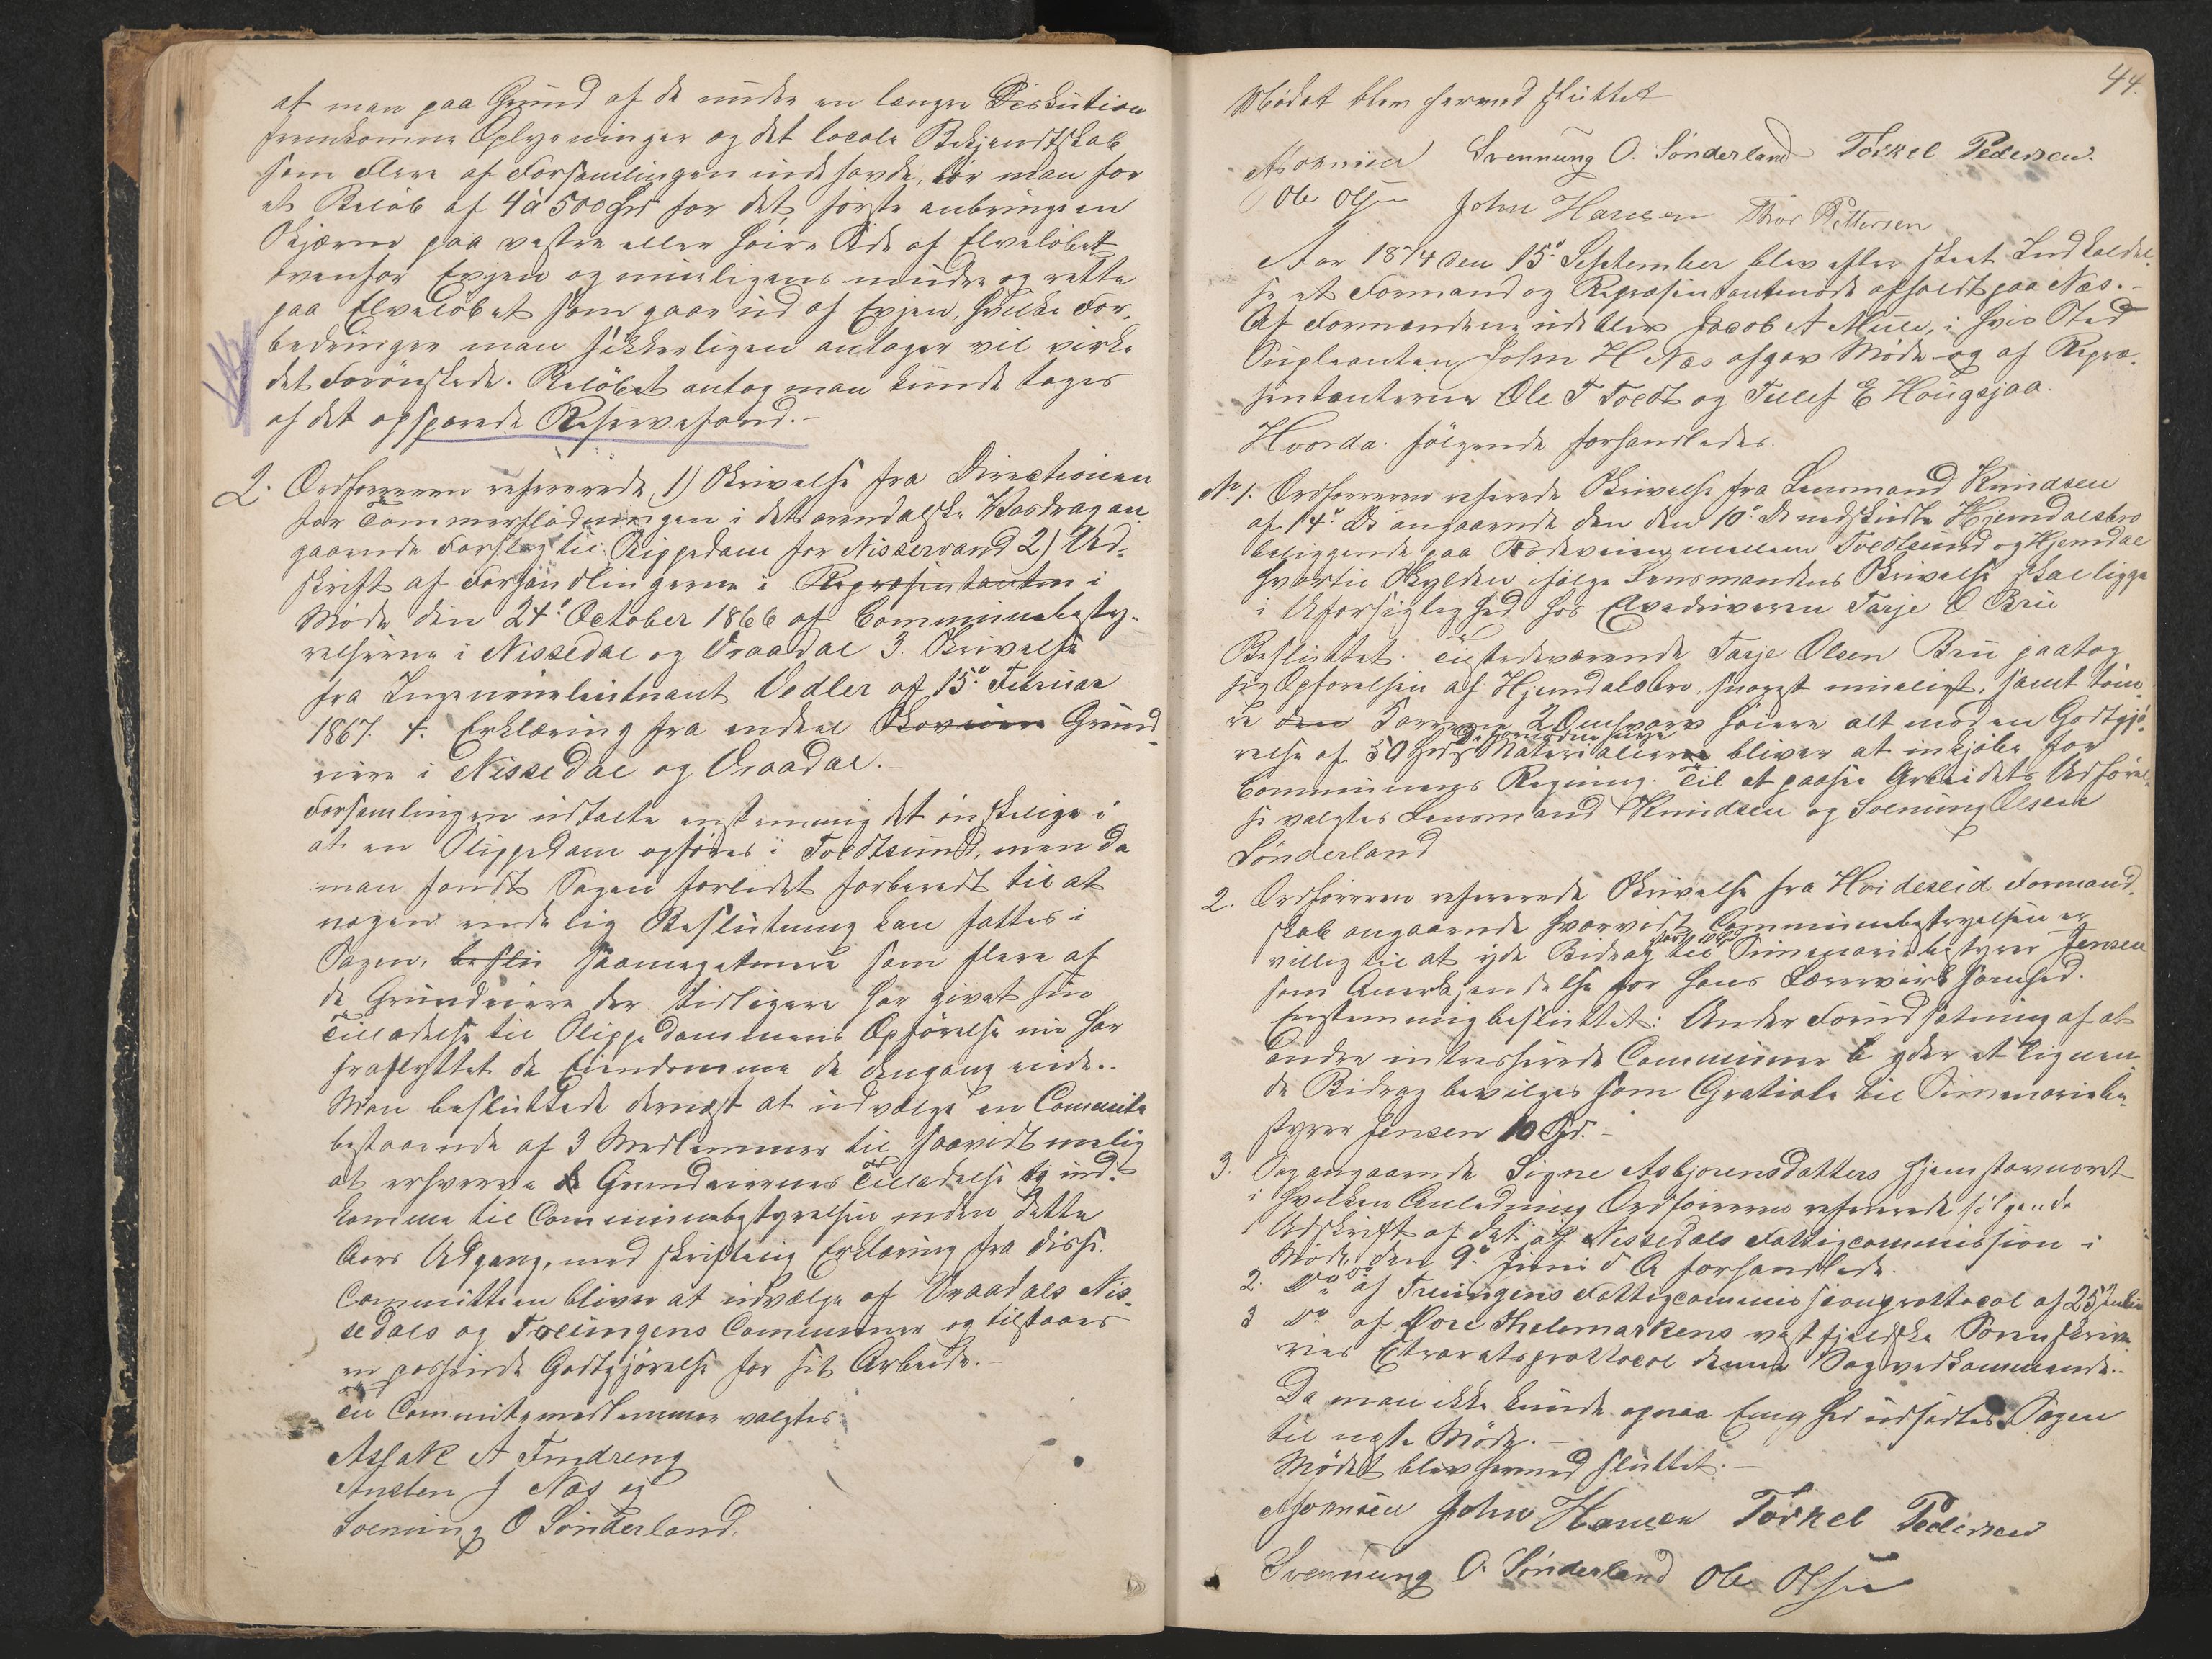 at man paa Grund af de under en længre Diskution
fremkomne Oplysninger og det locale Bekjendtskab
som Flere af Forsamlingen indehavde, bør man for
et Beløb af 4 à 500 Spd for det første anbringe en
Skjærm paa vestre eller høire Side af Elveløbet
ovenfor Evjen og muligens mudre og rette
paa Elveløbet som gaar ud af Evjen, hvilke For-
bedringer man sikkerligen antager vil virke
det Forønskede. Beløbet antog man kunde tages
af det opsparede Reservefond.-
2. Ordføreren refererede 1) Skrivelse fra Directionen
for Tømmerflødningen i det arendalske Vasdrag an-
gaaende Forslag til Slippedam for Nisservand 2) Ud-
skrift af Forhandlingerne i Repræsentanten i
Møde den 24de October 1866 af Communebesty-
relserne i Nissedal og Vraadal 3. Skrivelse
fra Ingenieurleutnant Vedler af 15de Februar
1867. 4. Erklæring fra endeel Skoveiere Grund-
eiere i Nissedal og Vraadal.-
Forsamlingen udtalte enstemmig det ønskelige i
at en Slippedam opføres i Tvedtsund, men da
man fandt Sagen forlidet forberedt til at
nogen endelig Beslutning kan fattes i
Sagen, beslu saameget mere som flere af
de Grundeiere der tidligere har givet sin
Tilladelse til Slippedammens Opførelse nu har
fraflyttet de Eiendomme de dengang eiede.
Man besluttede dernæst at udvælge en Committe
bestaaende af 3 Medlemmer til saavidt mulig
at erhverve Grundeiernes Tilladelse og ind-
komme til Communebestyrelsen inden dette
Aars Udgang, med skriftlig Erklæring fra disse.
Committeen bliver at udvælge af Vraadals Nis-
sedals og Treungens Communer og tilstaaes
en passende Godtgjørelse for sit Arbeide.-
Til Committemedlemmer valgtes
Aslak A Fjndreng
Austen J Næs og
Svenung O Sønderland.
44.
Mødet blev hermed sluttet
Svennung O. Sønderland Torkel Pedersen.
Ole Olsen John Hansen Thor Pettersen
Aar 1874 den 15de September blev efter skeet Indkaldel-
se et Formand og Repræsentantmøde afholdt paa Næs.-
Af Formændene udeblev Jacob A Mule, i hvis Sted
Supleanten John H Næs afgav Møde og af Repræ-
sentanterne Ole T Tvedt og Tellef E Haugsjaa.
Hvorda følgende forhandledes.
No 1. Ordføreren referede Skrivelse fra Lensmand Knudsen
af 14de Ds angaaende den den 10de Ds nedstyrtede Hjemdalsbro
beliggende paa Rodeveien mellem Tvedtsund og Hjemdal
hvortil Skylden ifølge Lensmandens Skrivelse skal ligge
i Uforsigtighed hos Qvædriveren Tarje O Bru
Besluttet. Tilstedeværende Tarje Olsen Bru paatog
sig Opførelsen af Hjemdalsbro, snarest muligt, samt tøm-
re den 2 Omfarv høiere alt mod en Godtgjø-
relse af 50 Spd. De fornødne Materialier bliver at indkjøbe for
Communens Regning. Til at paasee Arbeidets Udførel-
se valgtes Lensmand Knudsen og Svenung Olsen
Sønderland
2. Ordføreren refererede Skrivelse fra Hvideseid Formand-
skab angaaende hvorvidt Communebestyrelsen er
villig til at yde Bidrag til Siminariebestyrer Jensen
som Anerkjendelse for hans Lærervirksomhed.
Enstemmig besluttet: Under Forudsætning af at
andre intresserede Communer yder et lignen-
de Bidrag bevilges som Gratiale til Siminariebe-
styrer Jensen 10 Spd.-
3. Sag angaaende Signe Asbjørensdatters Hjemstavnsret
i hvilken Anledning Ordføreren refererede følgende
1 Udskrift af det af Nissedals Fattigcommission i
Møde den 9de Juni d A forhandlede.
2. Do Do af Treungens Fattigcommissionsprottocol af 25 Juli
3 Do af Øvre Thelemarkens vestfjeldske Sorenskrive-
ries Extraretsprottocol denne Sag vedkommende.
Da man ikke kunde opnaa Enighed udsattes Sagen
til næste Møde.-
Mødet blev hermed sluttet.-
John Hansen Torkel Pedersen
Svennung O. Sønderland Ole Olsen